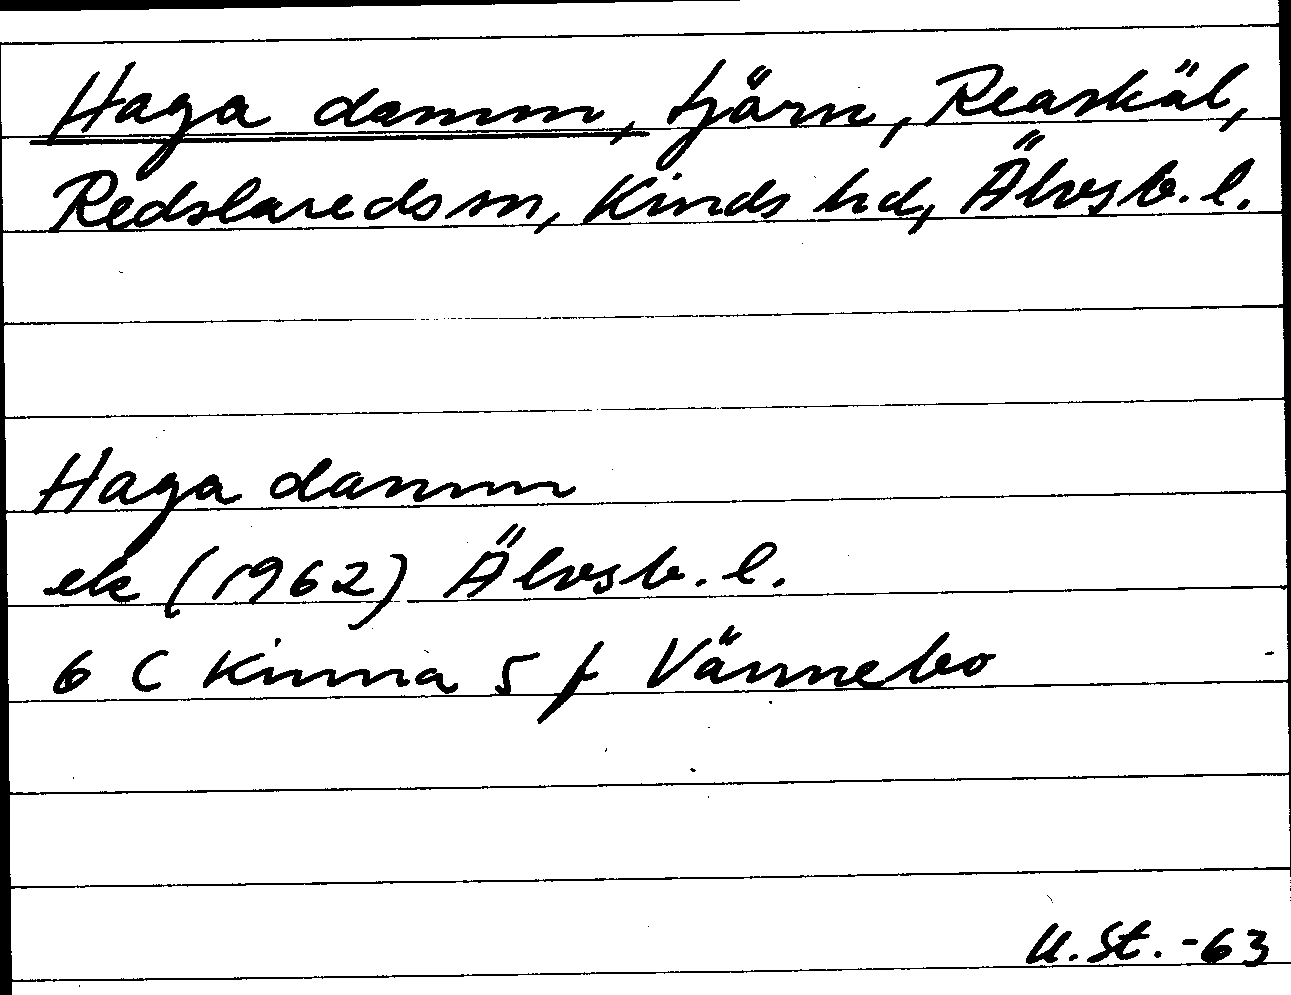 Haga damm, tjärn, Reaskäl,
Redslareds sn, Kinds hd, Älvsb. l.
Haga damm
ek (1962) Älvsb. l.
6 C Kinna 5 f Vännebo
U. St. -63